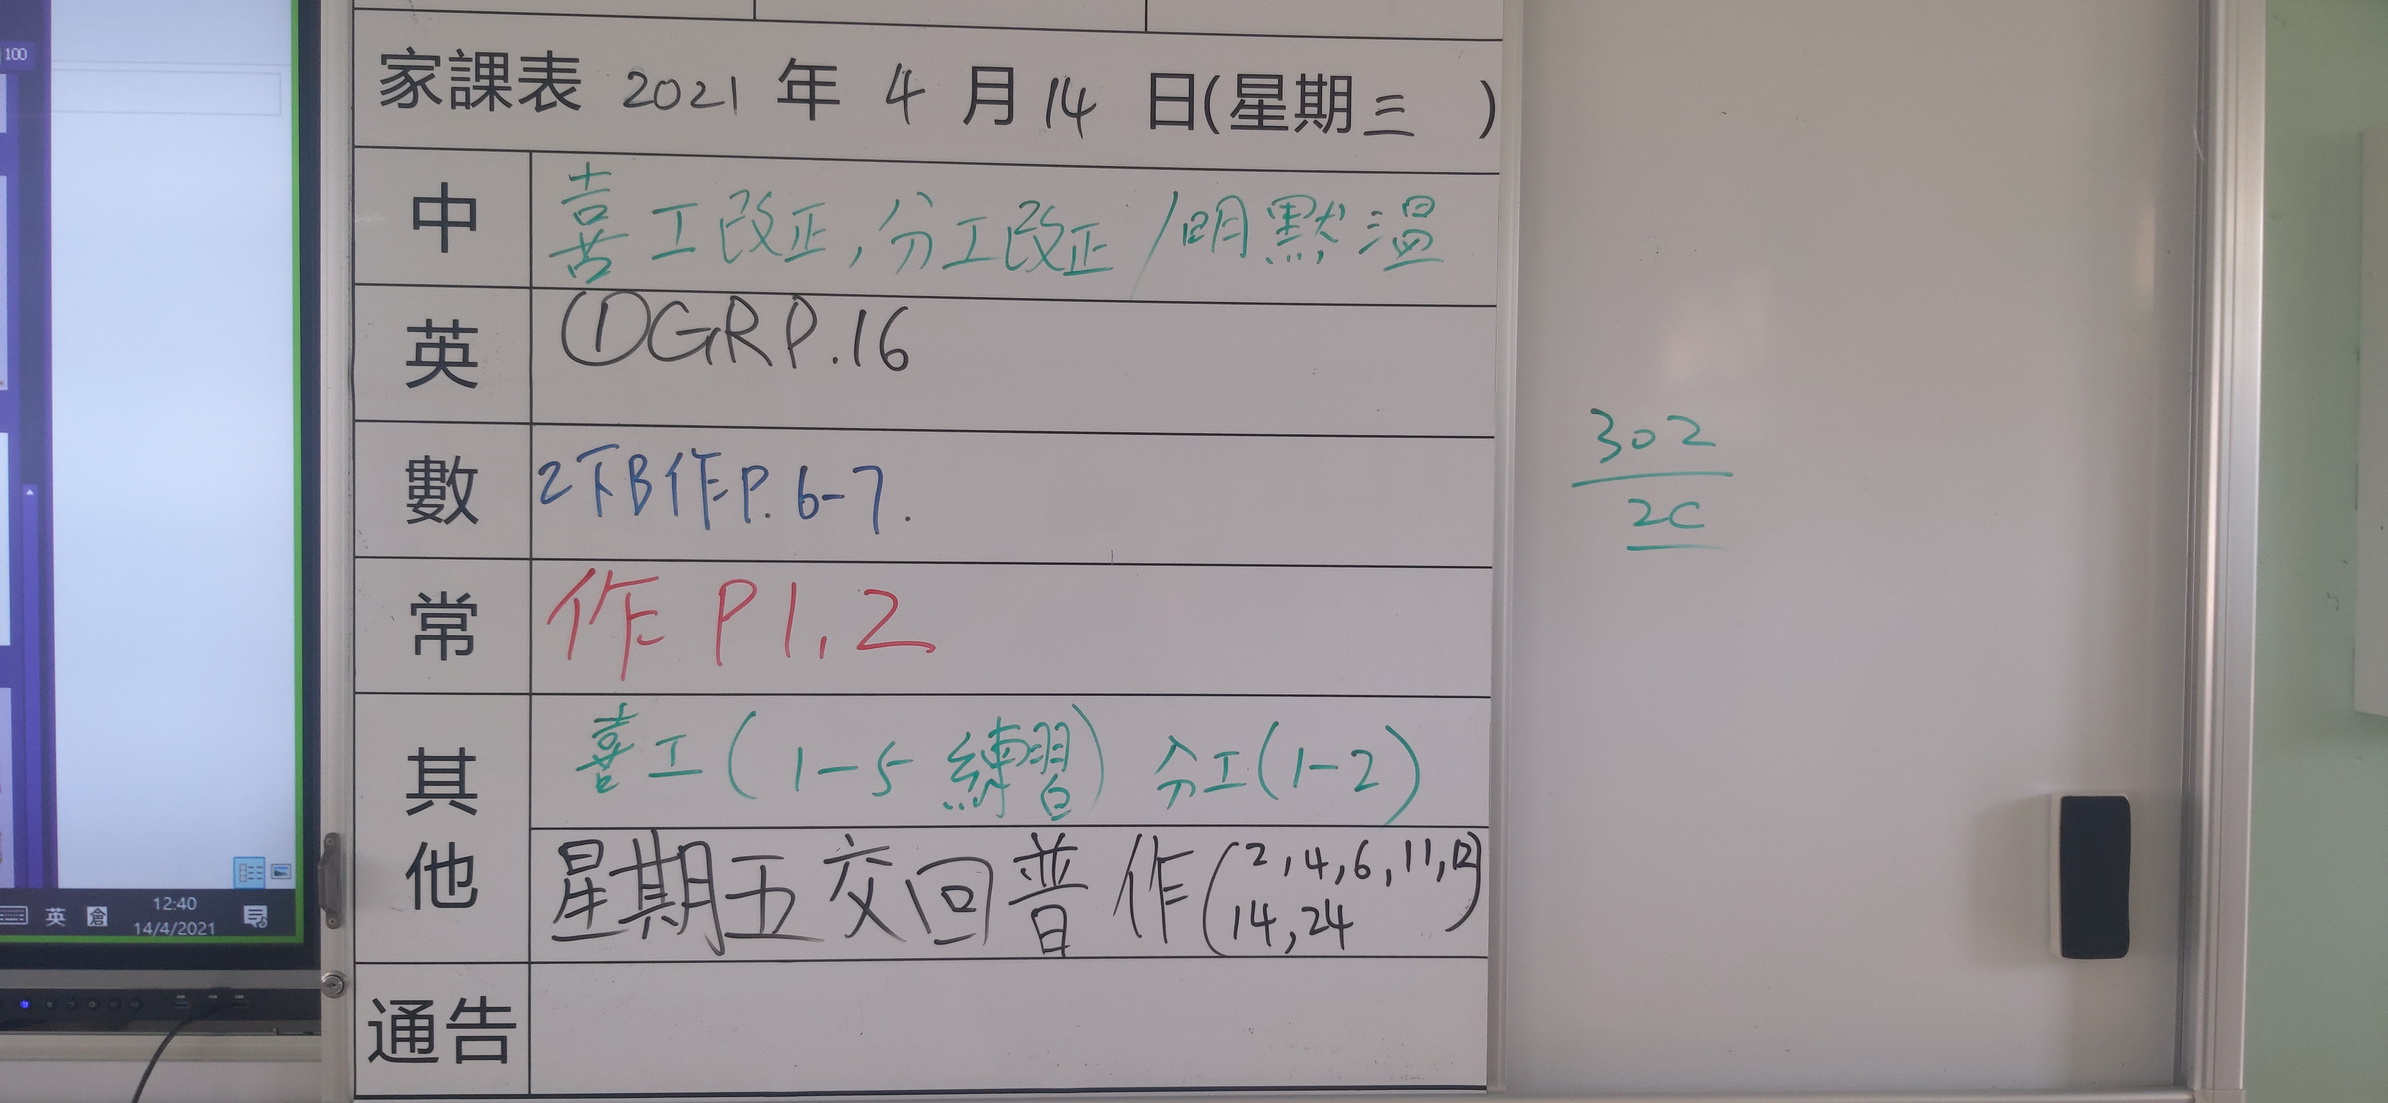 100
家課表 2021 年 4 月 14 日(星期三 )
中 喜工改正,分工改正/明默溫
英 ①GR P.16
數 2下B作P.6-7.
常 作 P1,2
其他 喜工(1-5 練習) 分工(1-2)
星期五交回普作(2,4,6,11,12
14,24)
通告
302
2C
英 倉 12:40
14/4/2021